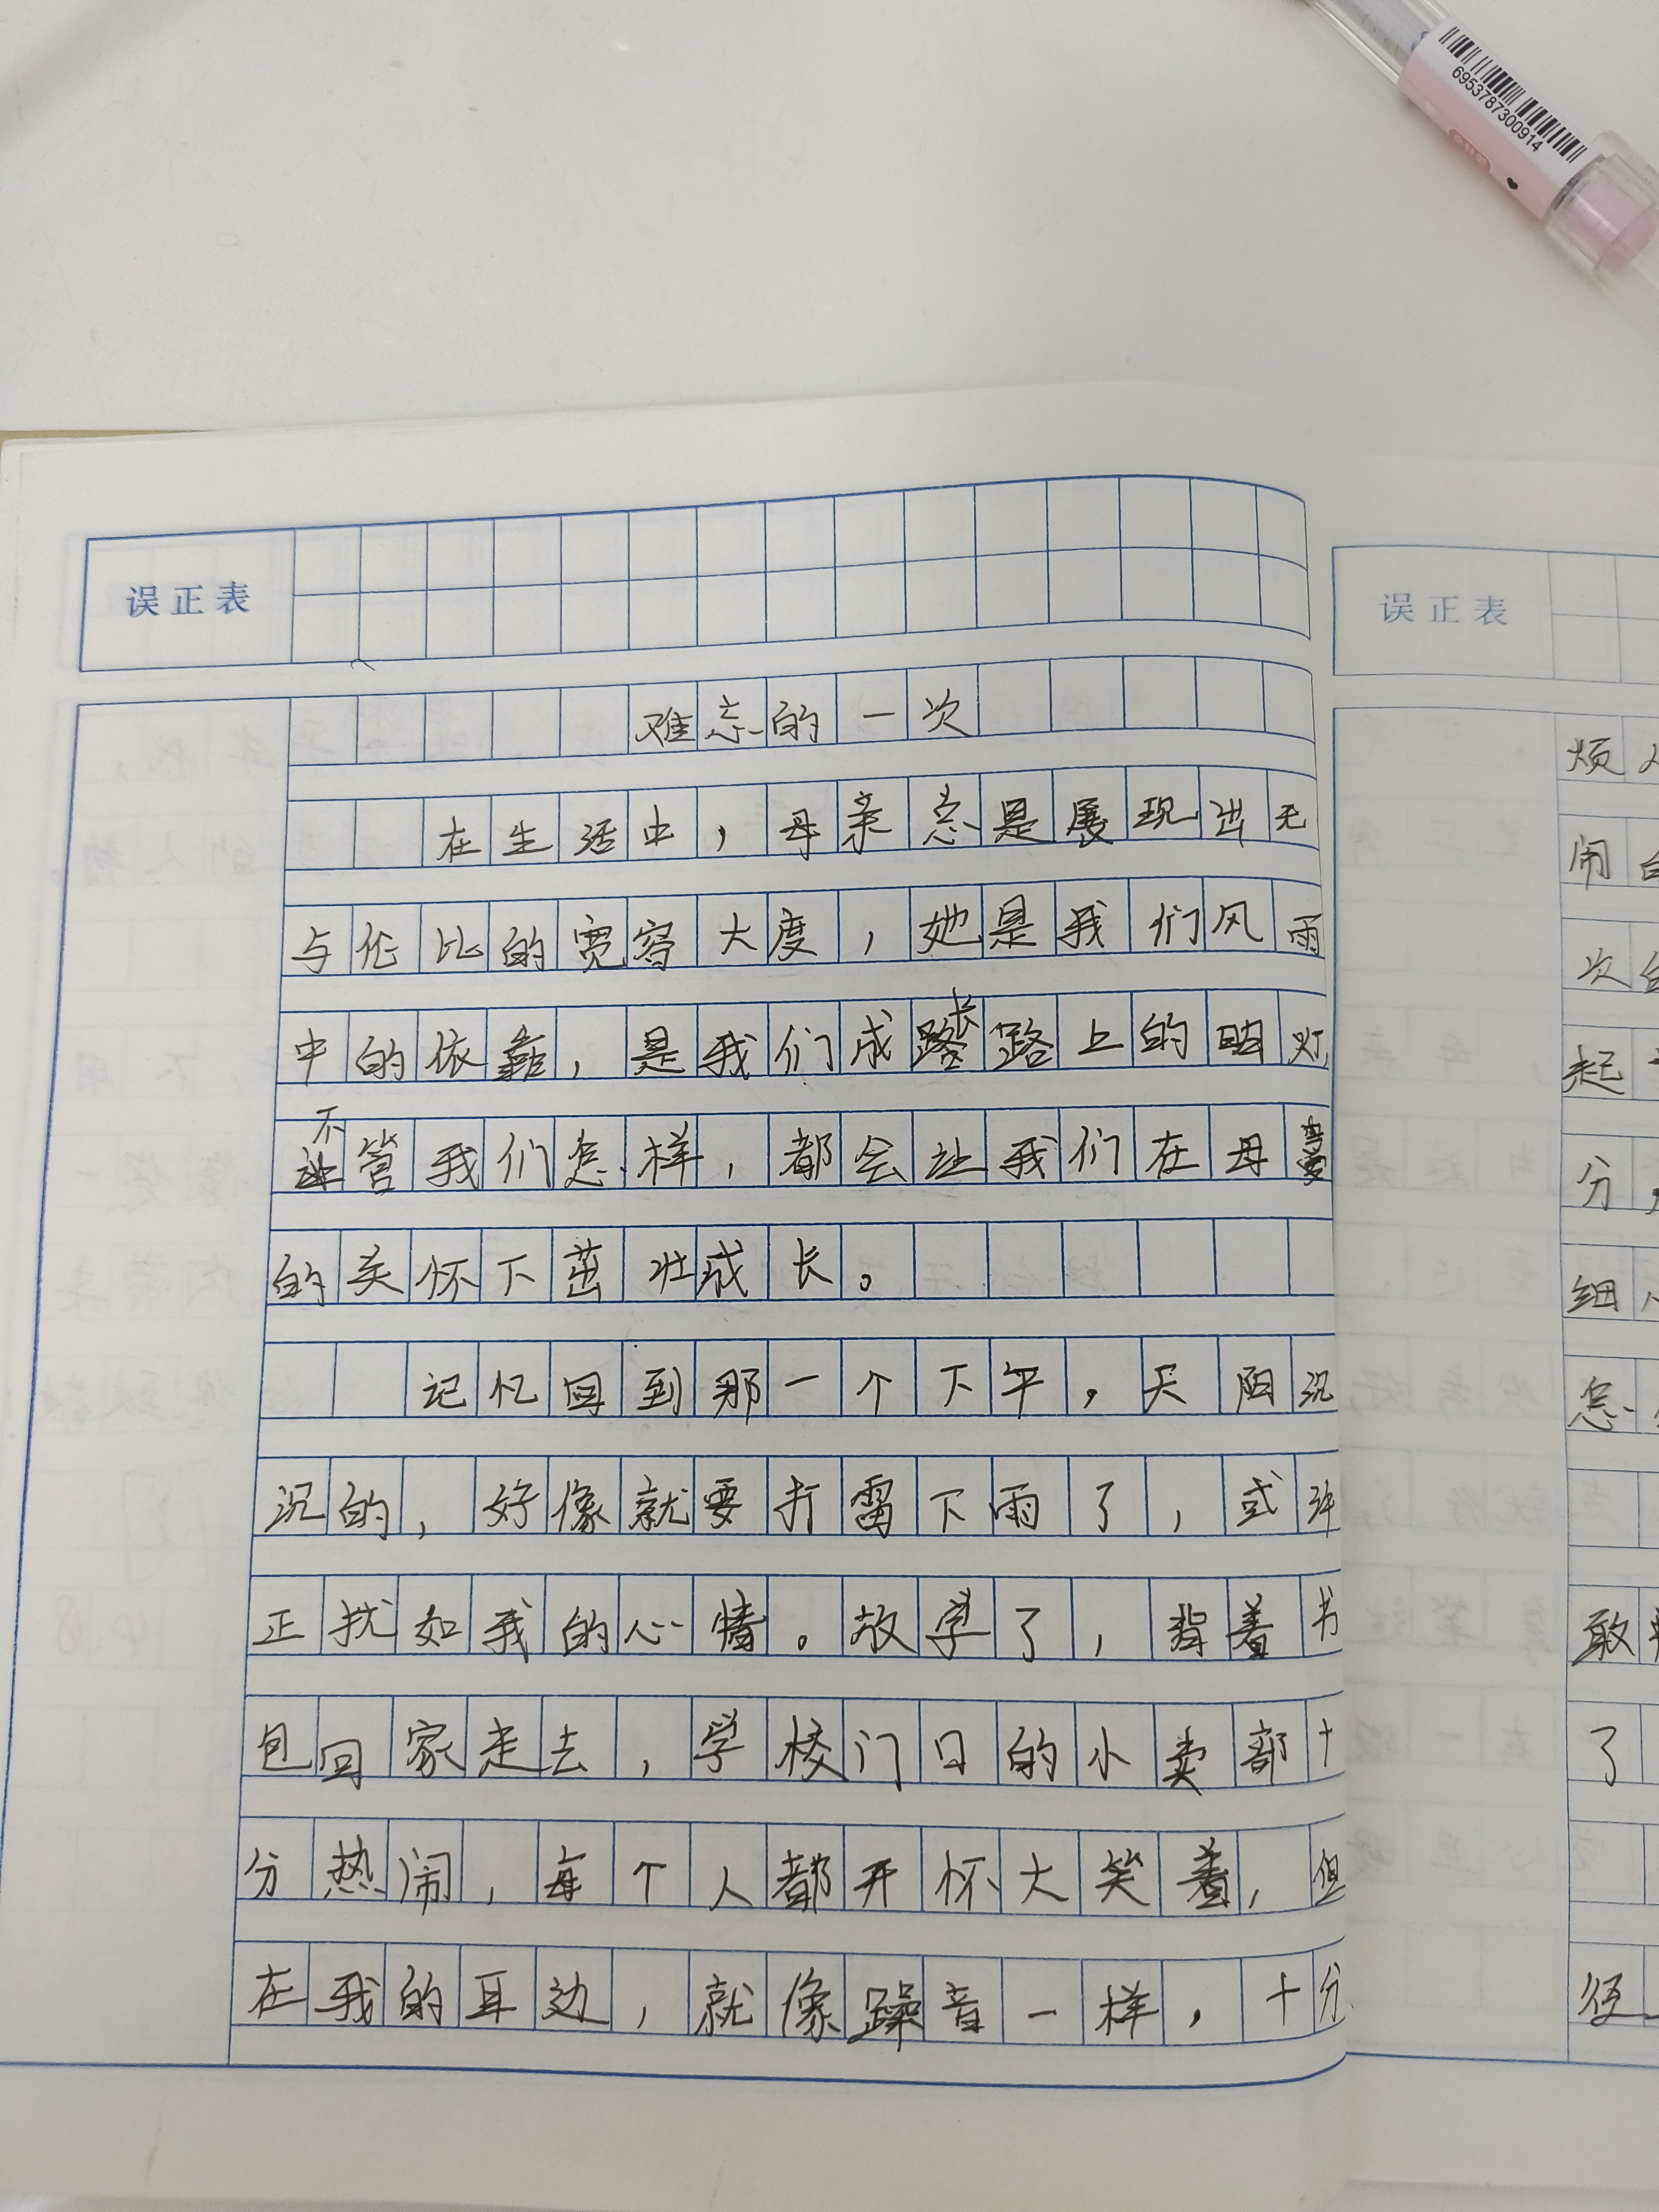 6953787300914
误正表
误正表
难忘的一次
在生活中，母亲总是展现出无
与伦比的宽容大度，她是我们风雨
中的依靠，是我们成长路上的明灯
不管我们怎样，都会让我们在母爱
的关怀下茁壮成长。
记忆回到那一个下午，天阴沉
沉的，好像就要打雷下雨了，或许
正扰如我的心情。放学了，背着书
包回家走去，学校门口的小卖部十
分热闹，每个人都开怀大笑着，但
在我的耳边，就像躁音一样，十分
烦
闹
次
起
分
细
怎
敢
了